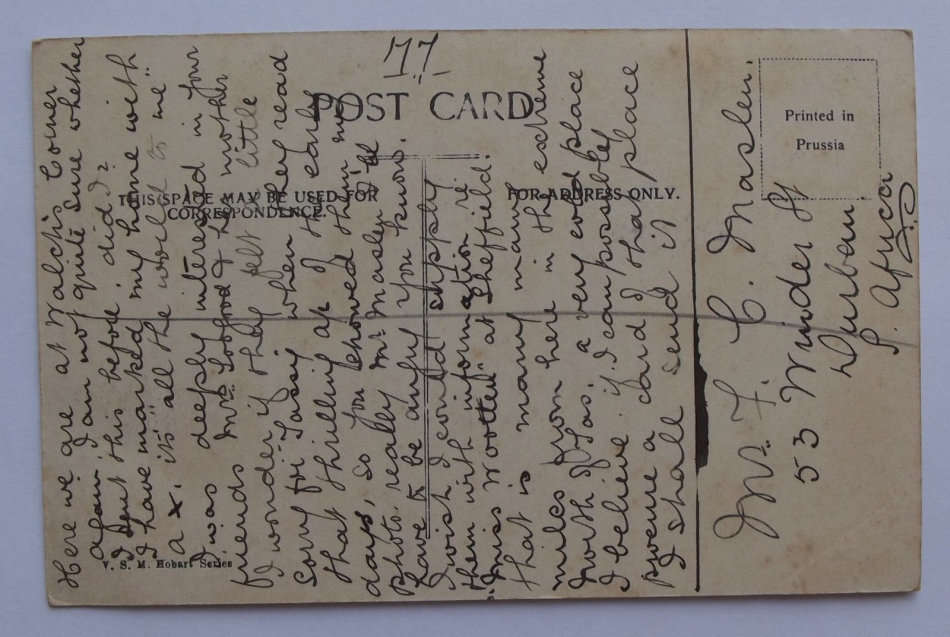 77
POST CARD
THIS SPACE MAY BE USED FOR
CORRESPONDENCE.
FOR ADDRESS ONLY.
Printed in
Prussia
V. S. M. Hobart Series
Here we are at Walch's Corner
again. I am not quite sure whether
I sent this before, did I?
I have marked my home with
a x. its "all the world to me"
I was deeply interested in your
friends Mrs. & her mother
I wonder if they felt little
sorry for Tassy when they read
that thrilling ap of the early
days, so you showed them my
Photo. really Mr. Maslen I'll
have to be angry you know.
I wish I could supply
them with information re.
Miss Wootten at Sheffield.
that is many many
miles from here in the extreme
North of Tas. a very cold place
I believe. if I can possible
procure a card of that place
I shall send it
Mr. F. C. Maslen.
53 Winder St
Durban
S. Africa